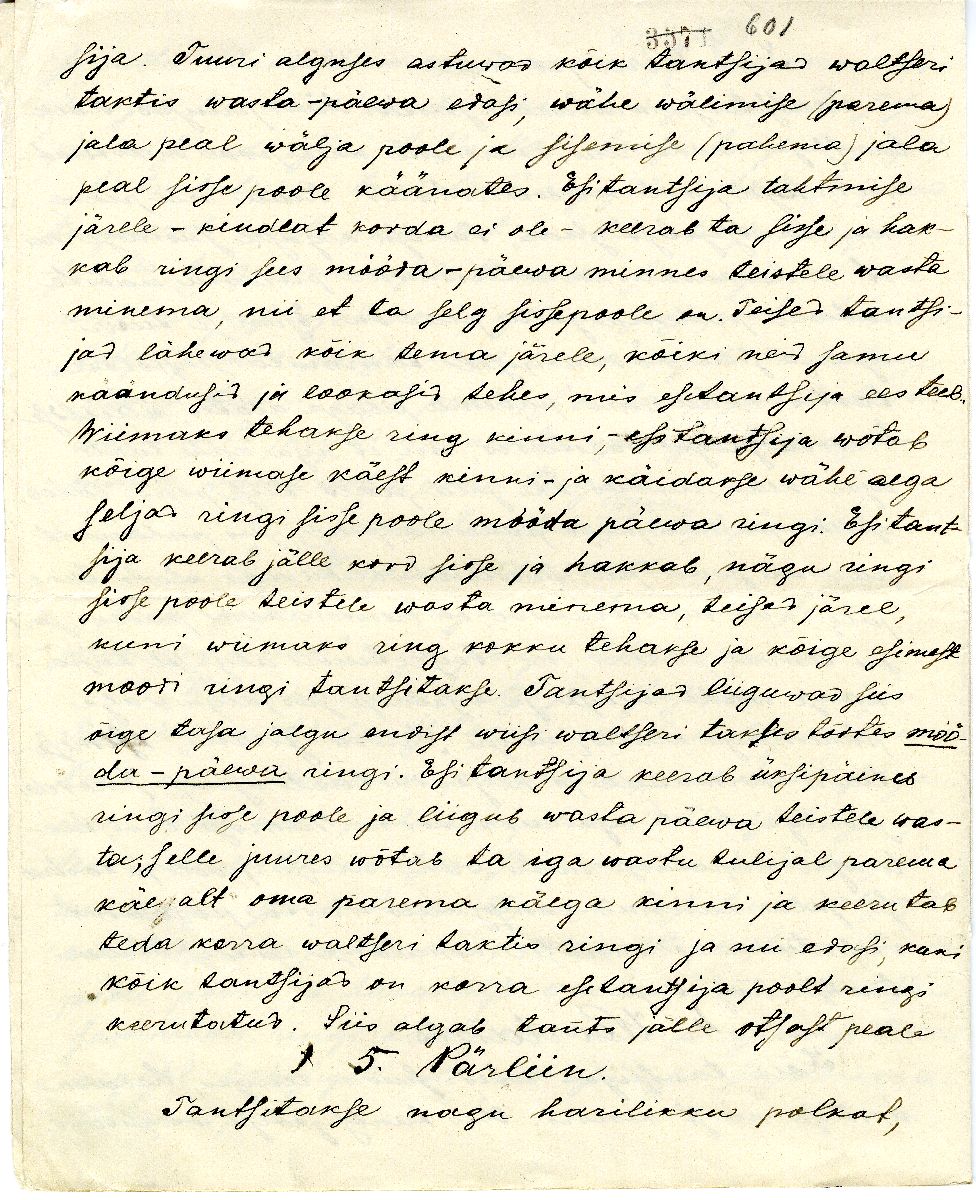 3371 601
sija. Tuuri alguses astuwad kõik tantsijad waltseri
taktis wasta-päewa edasi, wähe wälimise (parema)
jala peal wälja poole ja sisemise (pahema) jala
peal sisse poole käänates. Esitantsija tahtmise
järele - kindlat korda ei ole - keerab ta sisse ja hak-
kab ringi sees mööda-päewa minnes teistele wasta
minema, nii et ta selg sissepoole on. Teised tantsi-
jad lähewad kõik tema järele, kõiki neid samu
käändusid ja lookasid tehes, mis esitantsija ees teeb.
Wiimaks tehakse ring kinni, - esitantsija wõtab
kõige wiimase käest kinni - ja käidakse wähe aega
seljad ringi sisse poole mööda päewa ringi. Esitant-
sija keerab jälle kord sisse ja hakkab, nägu ringi
sisse poole teistele wasta minema, teised järel,
kuni wiimaks ring kokku tehakse ja kõige esimest
moodi ringi tantsitakse. Tantsijad liiguwad siis
õige tasa jalgu endist wiisi waltseri taktis tõstes möö-
da-päewa ringi. Esitantsija keerab üksipäines
ringi sisse poole ja liigub wasta päewa teistele was-
ta; selle juures wõtab ta iga wastu tulijal parema
käe alt oma parema käega kinni ja keerutab
teda korra waltseri taktis ringi ja nii edasi, kuni
kõik tantsijad on korra esitantsija poolt ringi
keerutatud. Siis algab tants jälle otsast peale
5. Pärliin.
Tantsitakse nagu harilikku polkat,